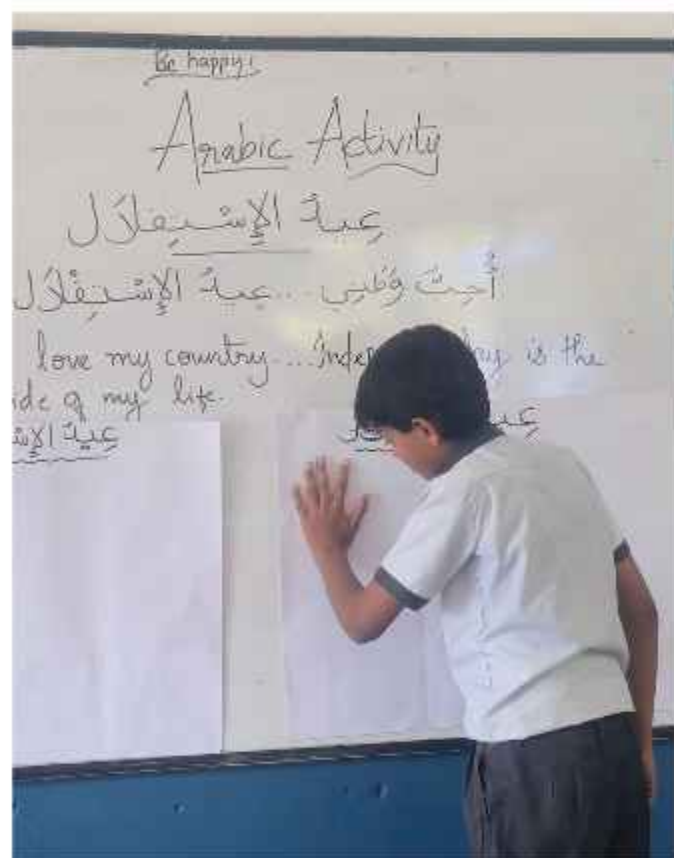 Be happy!
Arabic Activity
عِيدُ الإِسْتِقْلَال
أُحِبُّ وَطَنِي ... عِيدُ الإِسْتِقْلَال
love my country ... Inde ay is the
ide of my life.
عِيدُ الإِسْ
عِيد